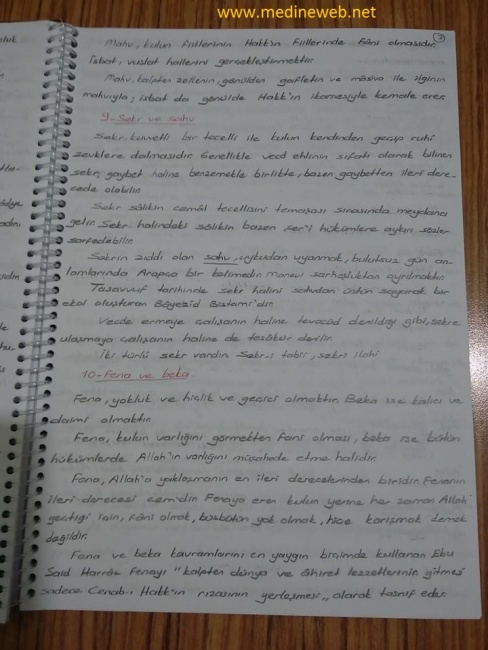 www.medineweb.net
3
Mahv, kulun fiillerinin Hakk'ın fiillerinde fâni olmasıdır.
İsbat, vuslat hallerini gerçekleştirmektir.
Mahv, kalpten zellenin, gönülden gafletin ve mâsiva ile ilginin
mahvıyla; isbat da gönülde Hakk'ın ikamesiyle kemale erer.
9-Sekr ve sahv
Sekr, kuvvetli bir tecelli ile kulun kendinden geçip ruhî
zevklere dalmasıdır. Genellikle vecd ehlinin sıfatı olarak bilinen
sekr, gaybet haline benzemekle birlikte, bazen gaybetten ileri dere-
cede olabilir.
Sekr sâlikin cemâl tecellisini temaşası sırasında meydana
gelir. Sekr halindeki sâlikin bazen şer'î hükümlere aykırı sözler
sarfedebilir.
Sekrin zıddı olan sahv, uykudan uyanmak, bulutsuz gün an-
lamlarında Arapça bir kelimedir. Manevi sarhoşluktan ayrılmaktır.
Tasavvuf tarihinde sekr halini sahvdan üstün sayarak bir
ekol oluşturan Bâyezid Bistami'dir.
Vecde ermeye çalışanın haline tevacüd denildiği gibi, sekre
ulaşmaya çalışanın haline de tesâkür denilir.
İki türlü sekr vardır. Sekr-i tabii, sekr-i ilahi
10-Fena ve beka
Fena, yokluk ve hiçlik ve geçici olmaktır. Beka ise kalıcı ve
daimi olmaktır.
Fena, kulun varlığını görmekten fani olması, beka ise bütün
hükümlerde Allah'ın varlığını müşahade etme halidir.
Fena, Allah'a yaklaşmanın en ileri derecelerinden birisidir. Fenanın
ileri derecesi cem'dir. Fenaya eren kulun yerine her zaman Allah
geçtiği için, fâni olmak, büsbütün yok olmak, hiçe karışmak demek
değildir.
Fena ve beka kavramlarını en yaygın biçimde kullanan Ebu
Said Harrâz fenayı "kalpten dünya ve âhiret lezzetlerinin gitmesi
sadece Cenab-ı Hakk'ın rızasının yerleşmesi,, olarak tasnif eder.